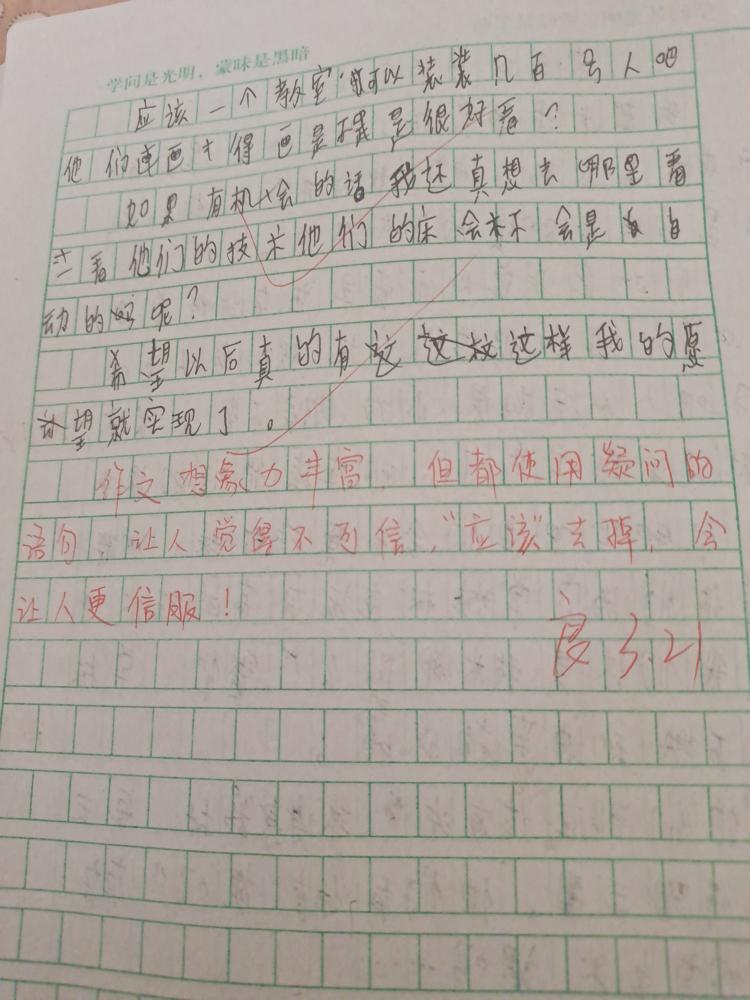 学问是光明，蒙昧是黑暗
应该一个教室就可以装装几百号人吧
他们连画才得画是不是是很好看？
如果有机会的话我还真想去那里看
看他们的技术他们的床会不会是自
动的呢？
希望以后真的有这这这样我的愿
望就实现了。
作文想象力丰富，但都使用疑问的
语句，让人觉得不可信，“应该”去掉，会
让人更信服！
良 3.21